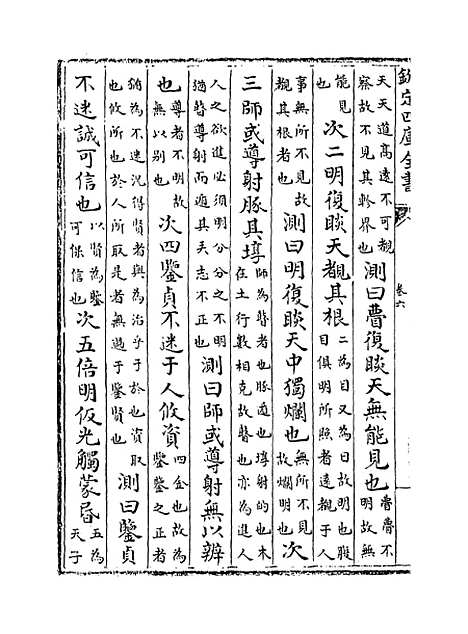 欽定四庫全書 卷六
天天道高遠不可覩察故不見其畛界也測曰瞢復睒天無能見也瞢瞢不明故無
能見也 次二明復睒天覩其根二為目又為日故明也股目俱明所照者遠覩于人
事無所不見故覩其根者也 測曰明復睒天中獨爛也無所不見故爛明也 次
三師或導射豚其埻師為瞽者也豚遁也埻射的也木在土行數相克故瞽也亦為進人
人之欲進必須明分分之不明猶瞽導射而遁其夫志不正也 測曰師或導射無以辨
也導者不明故無以别也 次四鑒貞不迷于人攸資四金也故為鑒鑒之正者
猶為不迷況得賢者與為治乎于於也資取也攸所也於人所取是者無過于鑒賢也 測曰鑒貞
不迷誠可信也以賢為鑒可保信也次五倍明仮光觸蒙昏五為天子